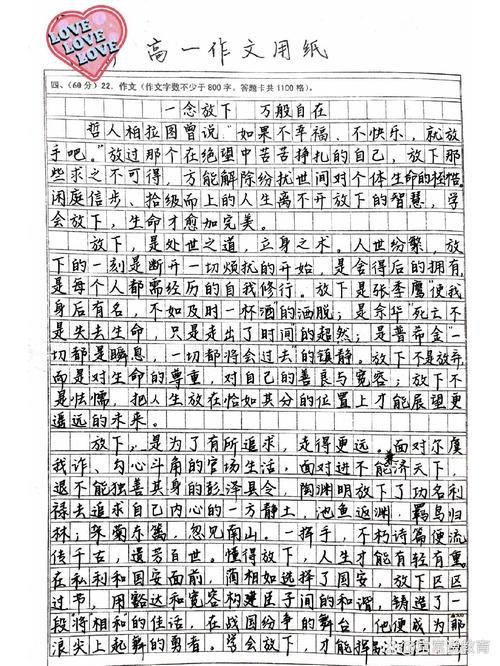 LOVE
LOVE
LOVE
高一作文用纸
四、(60分)22.作文(作文字数不少于800字,答题卡共1100格)。
一念放下 万般自在
哲人柏拉图曾说"如果不幸福、不快乐,就放
手吧。"放过那个在绝望中苦苦挣扎的自己,放下那
些求之不可得,方能解除纷扰世间对个体生命的桎梏。
闲庭信步、拾级而上的人生离不开放下的智慧,学
会放下,生命才愈加完美。
放下,是处世之道,立身之术。人世纷繁,放
下的一刻是断开一切烦扰的开始,是舍得后的拥有,
是每个人都需经历的自我修行。放下是张季鹰"使我
身后有名,不如及时一杯酒"的洒脱;是余华"死亡不
是失去生命,只是走出了时间的超然;是普希金"一
切都是瞬息,一切都将会过去的镇静。放下不是放弃
而是对生命的尊重,对自己的善良与宽容;放下不
是怯懦,把人生放在恰如其分的位置上才能展望更
遥远的未来。
放下,是为了有所追求,走得更远。面对尔虞
我诈、勾心斗角的官场生活,面对进不能兼济天下,
退不能独善其身的彭泽县令,陶渊明放下了功名利
禄去追求自己内心的一方静土,池鱼返渊,羁鸟归
林;采菊东篱,忽见南山。一挥手,不朽诗篇便流
传千古,遗芳百世。懂得放下,人生才能有轻有重。
在私利和国安面前,蔺相如选择了国安,放下区区
过节,用豁达和宽容构建臣子间的和谐,铸造了一
段将相和的佳话,在战国纷争的舞台,他便成为那
浪尖上起舞的勇者。学会放下,才能挥
教育